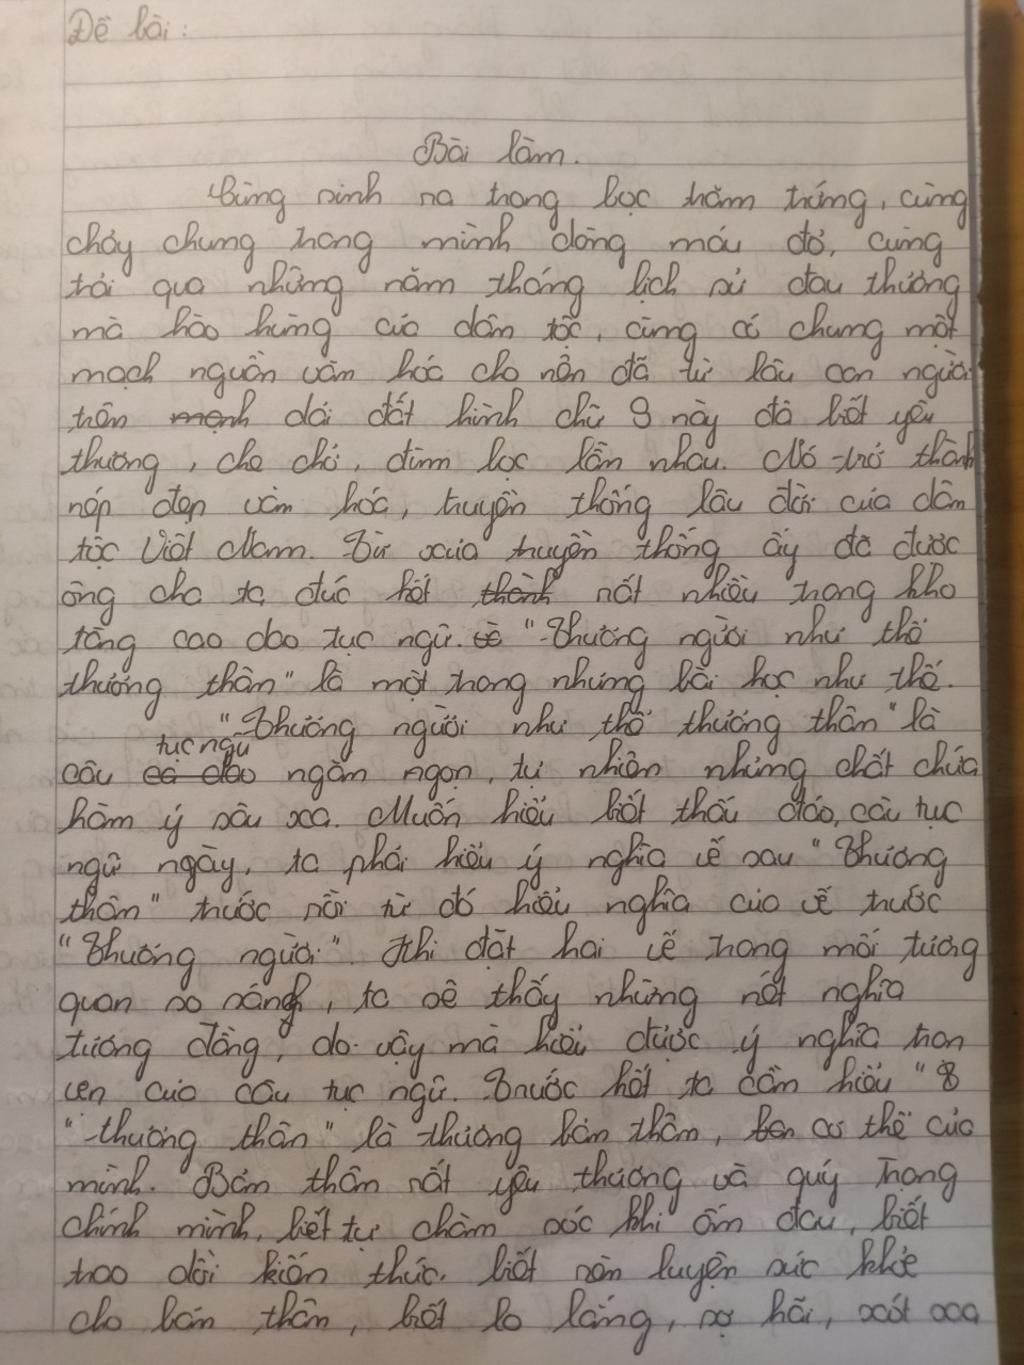 Đề bài:
Bài làm.
Cùng sinh ra trong bọc trăm trứng, cùng
chảy chung trong mình dòng máu đỏ, cùng
trải qua những năm tháng lịch sử đau thương
mà hào hùng của dân tộc, cùng có chung một
mạch nguồn văn hóa cho nên đã từ lâu con người
trên mảnh dải đất hình chữ S này đã biết yêu
thương, che chở, đùm bọc lẫn nhau. Nó trở thành
nếp đẹp văn hóa, truyền thống lâu đời của dân
tộc Việt Nam. Từ xưa truyền thống ấy đã được
ông cha ta đúc kết thành rất nhiều trong kho
tàng cao dao tục ngữ. "Thương người như thể
thương thân" là một trong những bài học như thế.
"Thương người như thể thương thân" là
tục ngữ
câu ca dao ngắn ngọn, tự nhiên nhưng chất chứa
hàm ý sâu xa. Muốn hiểu biết thấu đáo, câu tục
ngữ ngày, ta phải hiểu ý nghĩa vế sau "Thương
thân" trước rồi từ đó hiểu nghĩa của vế trước
"Thương người". Khi đặt hai vế trong mối tương
quan so sánh, ta sẽ thấy những nét nghĩa
tương đồng, do vậy mà hiểu được ý nghĩa trọn
vẹn của câu tục ngữ. Trước hết ta cần hiểu "T
"thương thân" là thương bản thân, cơ thể của
mình. Bản thân rất yêu thương và quý trọng
chính mình, biết tự chăm sóc khi ốm đau, biết
trao dồi kiến thức, biết rèn luyện sức khỏe
cho bản thân, biết lo lắng, sợ hãi, xót xoa